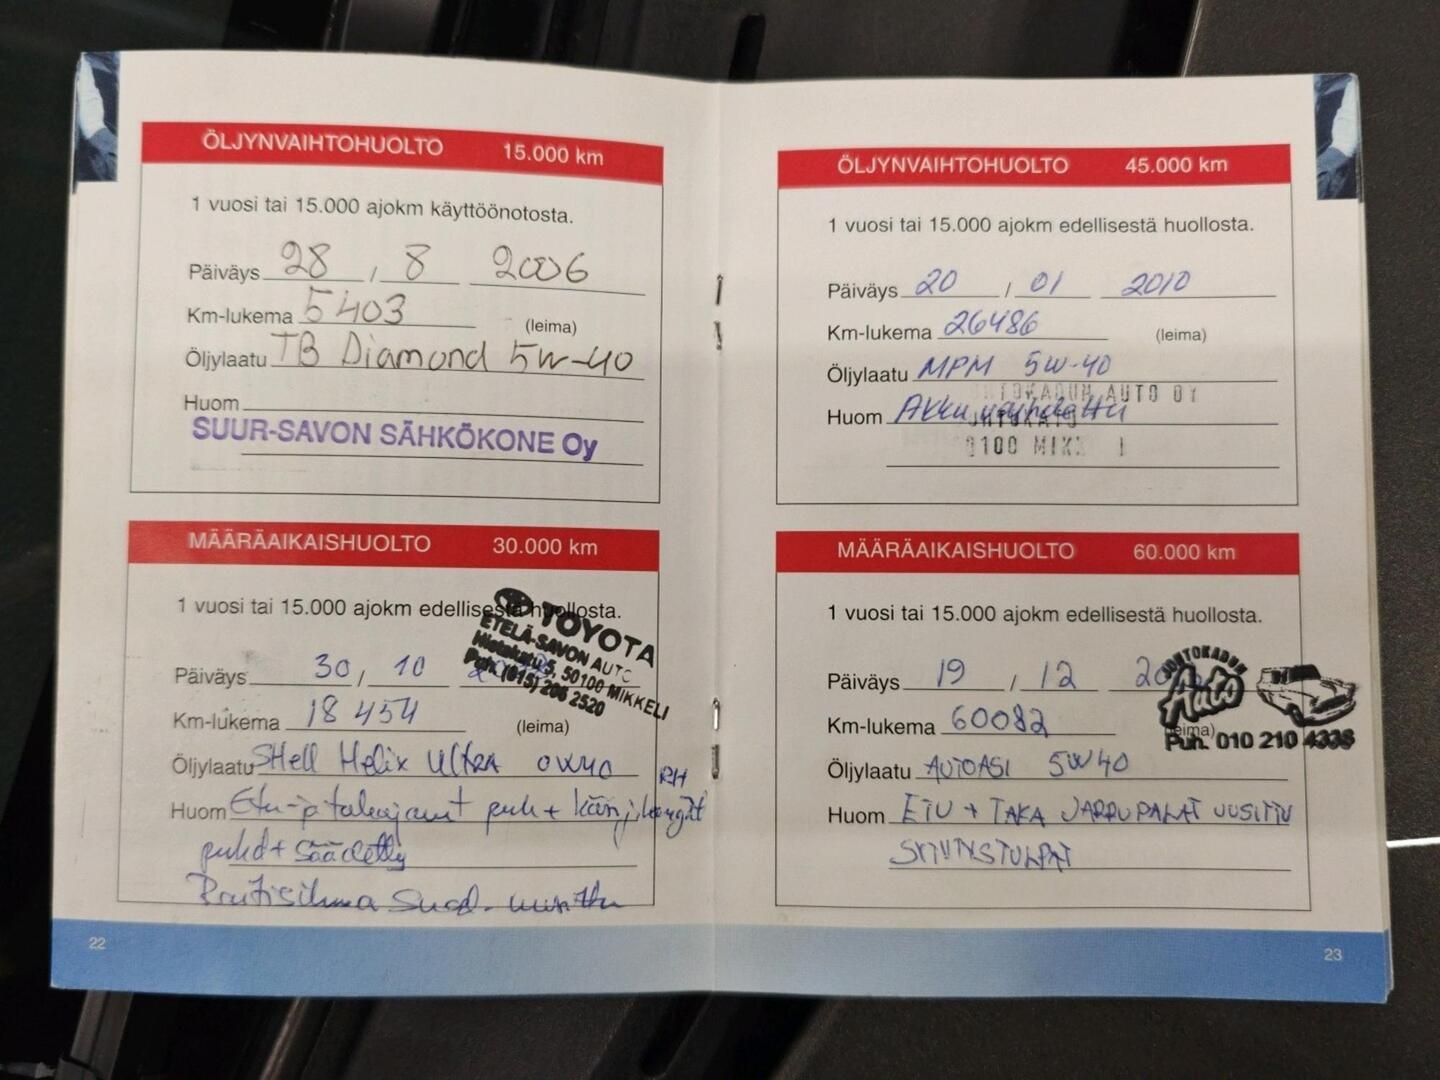 ÖLJYNVAIHTOHUOLTO 15.000 km
1 vuosi tai 15.000 ajokm käyttöönotosta.
Päiväys 28 / 8 2006
Km-lukema 5403 (leima)
Öljylaatu TB Diamond 5W-40
Huom
SUUR-SAVON SÄHKÖKONE Oy
MÄÄRÄAIKAISHUOLTO 30.000 km
1 vuosi tai 15.000 ajokm edellisestä huollosta.
TOYOTA
ETELÄ-SAVON AUTO
5, 50100 MIKKELI
Puh. (015) 206 2520
Päiväys 30 / 10
Km-lukema 18 454 (leima)
Öljylaatu SHell Helix Ultra 0W40
RH
Huom Etu-ja takajarrut puh +
puhd + säädetty
Raitisilma suod. uusittu
22
ÖLJYNVAIHTOHUOLTO 45.000 km
1 vuosi tai 15.000 ajokm edellisestä huollosta.
Päiväys 20 / 01 2010
Km-lukema 26486 (leima)
Öljylaatu MPM 5W-40
AUTO OY
Huom Akku vaihdettu
MÄÄRÄAIKAISHUOLTO 60.000 km
1 vuosi tai 15.000 ajokm edellisestä huollosta.
Päiväys 19 / 12
JOHTOKADUN
Auto
Puh. 010 210 4338
Km-lukema 60082 (leima)
Öljylaatu AUTOASI 5W40
Huom ETU + TAKA JARRUPALAT UUSITTU
SYTYTYSTULPAT
23